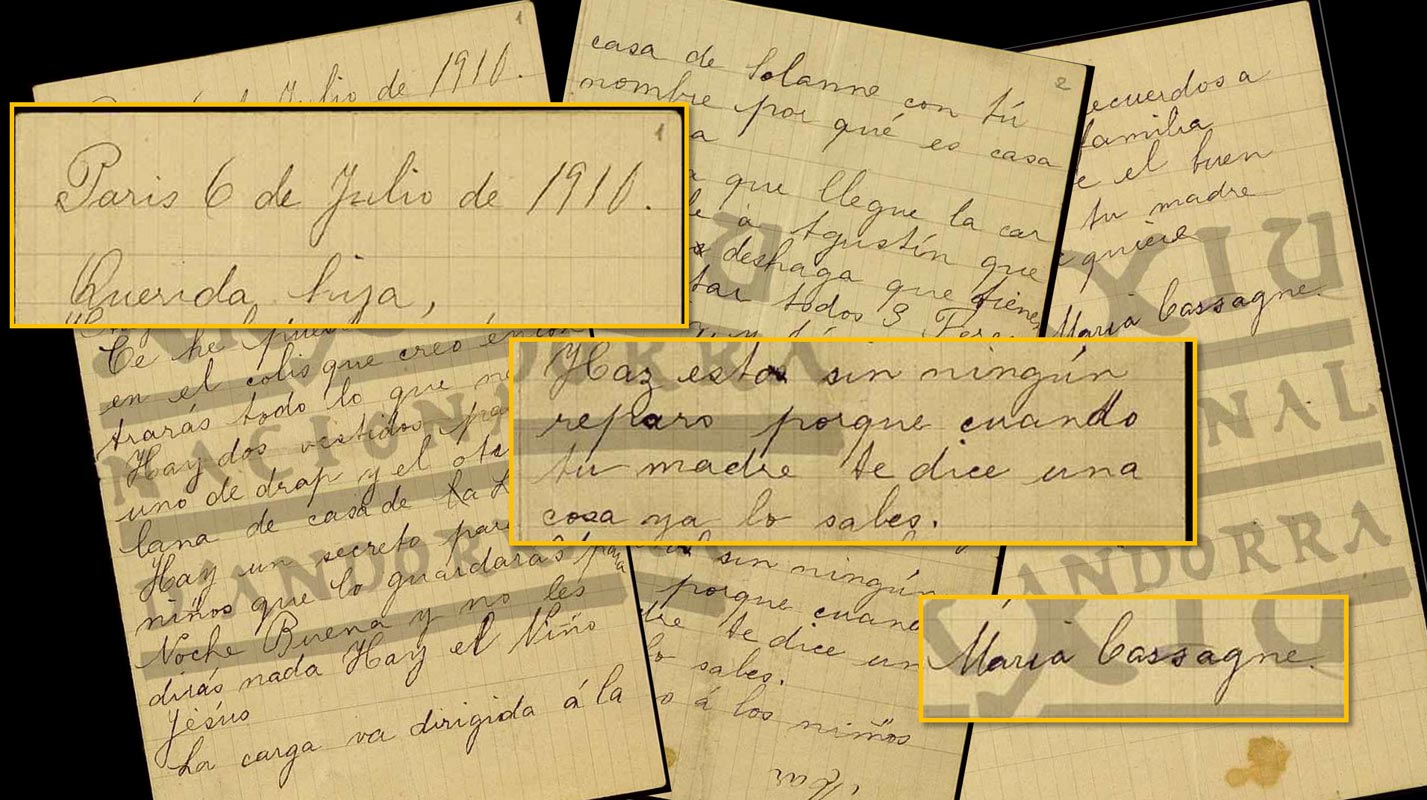 1
Julio de 1910.
1
Paris 6 de Julio de 1910.
Querida hija,
Te he
en el colis que creo
trarás todo lo que
Hay dos vestidos
uno de drap y el
lana de casa de
Hay un secreto
niños que lo guardarás
Noche Buena y no les
dirás nada Hay el Niño
Jesús
La carga va dirigida á la
2
casa de Solanne con tú
nombre por qué es casa
a
que llegue la car
á Agustín que
deshaga que tienen
todos 3
Haz estos sin ningún
reparo porque cuando
tu madre te dice una
cosa ya lo sabes.
sin ningún
porque
te dice un
sabes.
á los niños
ecuerdos a
familia
e el buen
tu madre
quiere
Maria Cassagne.
Maria Cassagne.
ARXIU
NACIONAL
D'ANDORRA